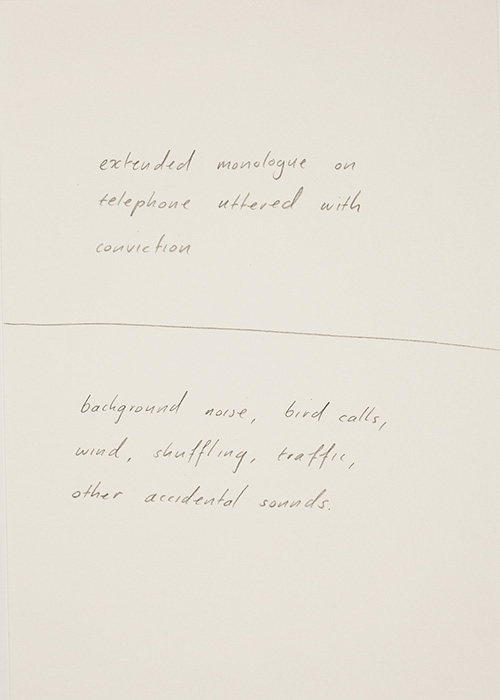 extended monologue on
telephone uttered with
conviction
background noise, bird calls,
wind, shuffling, traffic,
other accidental sounds.